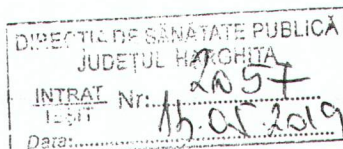 DIRECȚIA DE SĂNĂTATE PUBLICĂ
JUDEȚUL HARGHITA
INTRAT
IEȘIT
Nr:
Data:
05.2019